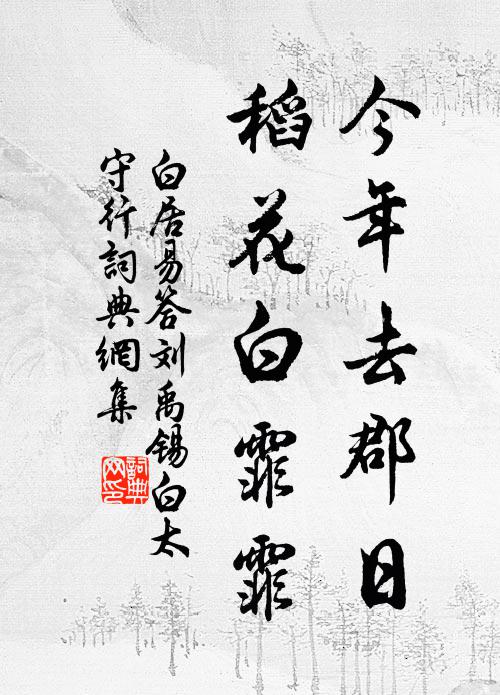 今年去郡日
稻花白霏霏
白居易答刘禹锡白太
守行詞典網集
詞典
网印